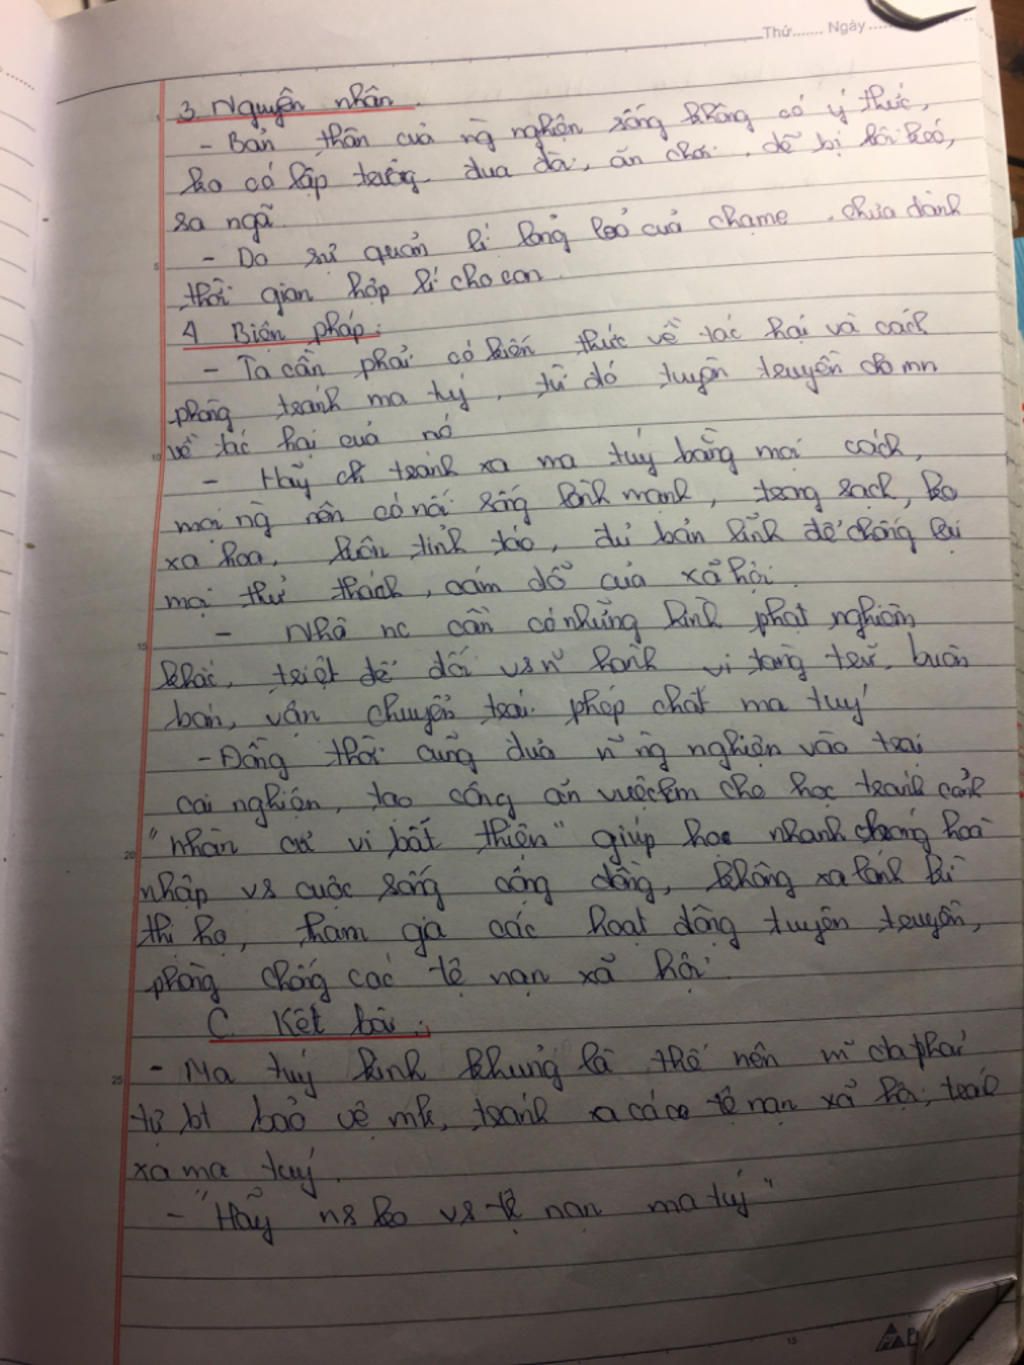 Thứ....... Ngày.......
3. Nguyên nhân.
- Bản thân của ng nghiện sống không có ý thức,
ko có lập trường, đua đòi, ăn chơi, dễ bị lôi kéo,
sa ngã.
- Do sự quản lí lỏng lẻo của cha mẹ, chưa dành
thời gian hợp lí cho con.
4 Biện pháp:
- Ta cần phải có kiến thức về tác hại và cách
phòng tránh ma túy, từ đó tuyên truyền cho mn
về tác hại của nó
- Hãy tránh xa ma túy bằng mọi cách,
mọi ng nên có lối sống lành mạnh, trong sạch, ko
xa hoa, luôn tỉnh táo, đủ bản lĩnh để chống lại
mọi thử thách, cám dỗ của xã hội.
- Nhà nc cần có những hình phạt nghiêm
khắc, triệt để đối vs n~ hành vi tàng trữ, buôn
bán, vận chuyển trái phép chất ma túy
- Đồng thời cũng đưa n~ ng nghiện vào trại
cai nghiện, tạo công ăn việc làm cho họ tránh cảnh
"nhàn cư vi bất thiện" giúp họ nhanh chóng hoà
nhập vs cuộc sống cộng đồng, không xa lánh kì
thị họ, tham gia các hoạt động tuyên truyền,
phòng chống các tệ nạn xã hội.
C. Kết bài:
- Ma túy kinh khủng là thế nên m~ phải
tự bt bảo vệ mk, tránh xa các tệ nạn xã hội, tránh
xa ma túy.
- "Hãy ns ko vs tệ nạn ma túy"
5
10
15
20
25
15